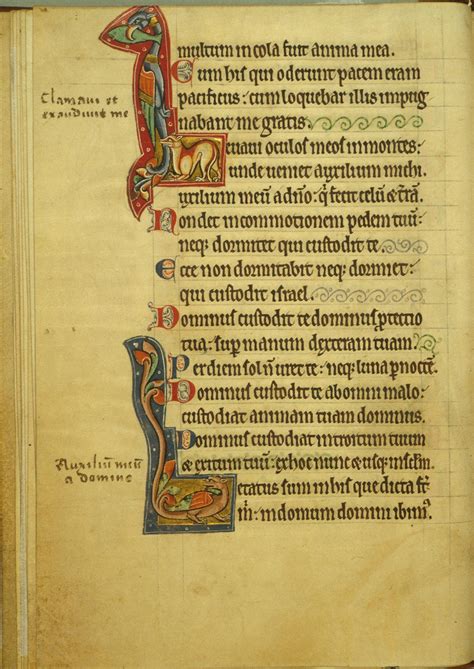 multum incola fuit anima mea.
Cum his qui oderunt pacem eram
pacificus: cum loquebar illis impug
nabant me gratis.
Clamavi et
exaudivit me
Levavi oculos meos in montes:
unde veniet auxilium michi.
Auxilium meū a dño: q̄ fecit celū & t̄rā.
Non det in commotionem pedem tuū:
neq; dormitet qui custodit te.
Ecce non dormitabit neq; dormiet:
qui custodit israel.
Dominus custodit te dominus ꝓtectio
tua: sup̄ manum dexteram tuam.
Per diem sol ñ uret te: neq; luna ꝑ noctē.
Dominus custodit te ab omni malo:
custodiat animam tuam dominus.
Dominus custodiat introitum tuum
& exitum tuū: ex hoc nunc & usq; in sclm̄.
Auxiliū meū
a domino
Letatus sum in his que dicta st̄
m̄: in domum domini ibim⁹.